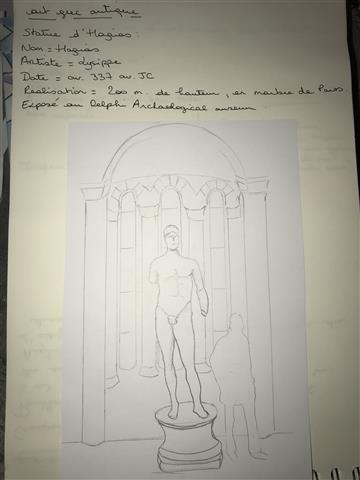 art grec antique
Statue d'Hagias :
Nom = Hagias
Artiste = Lysippe
Date = av. 337 av. JC
Réalisation = 200 m. de hauteur, en marbre de Paros.
Exposé au Delphi Archaelogical museum